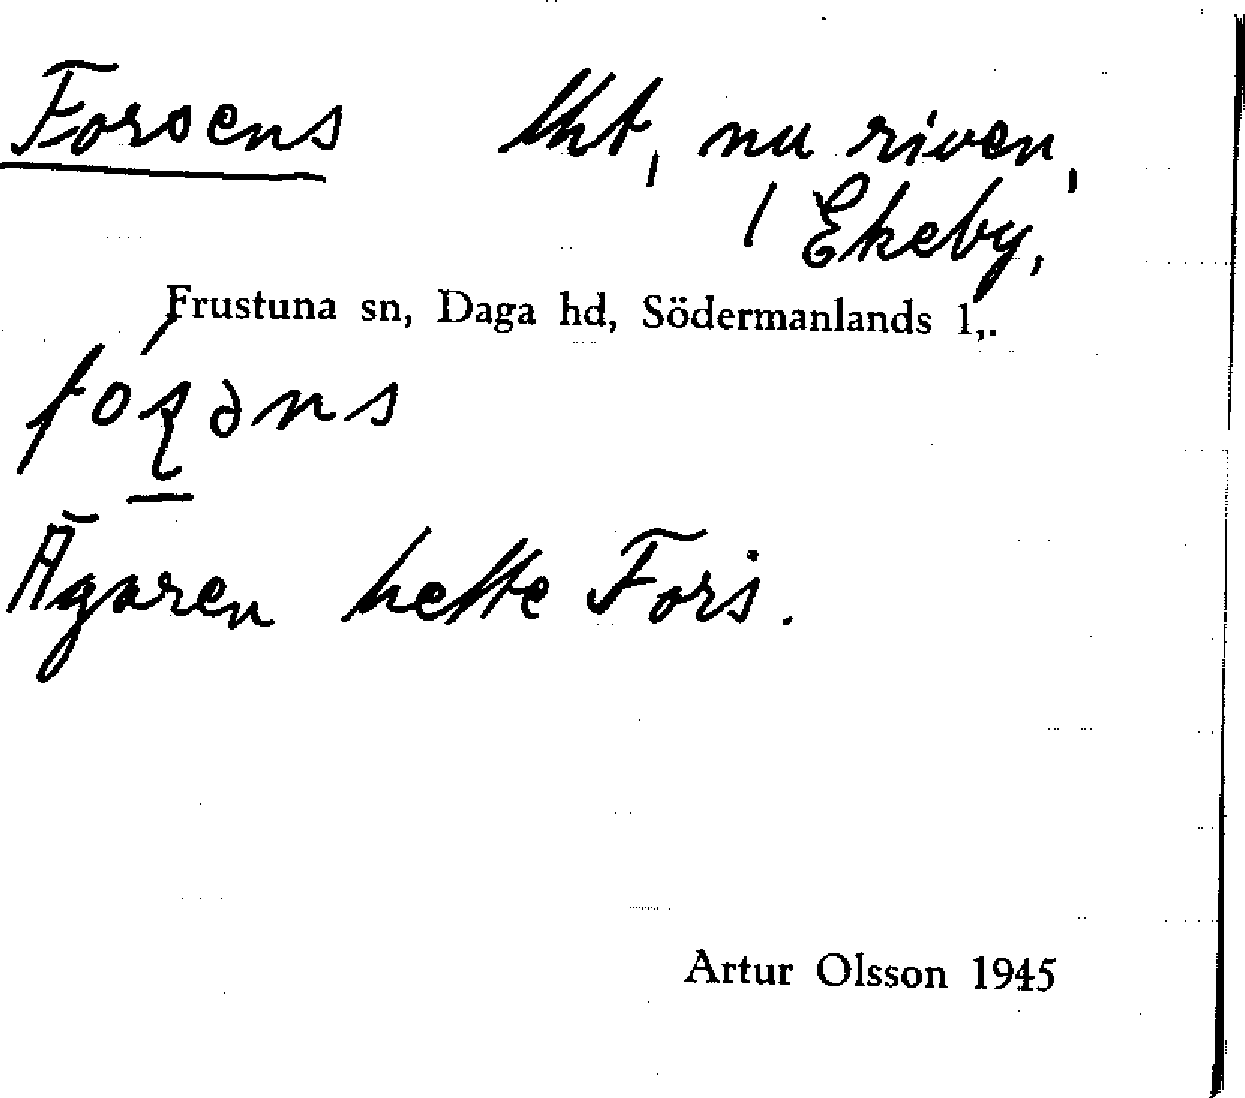 Forsens lht, nu riven,
i Ekeby,
Frustuna sn, Daga hd, Södermanlands l,.
Ägaren hette Fors.
Artur Olsson 1945